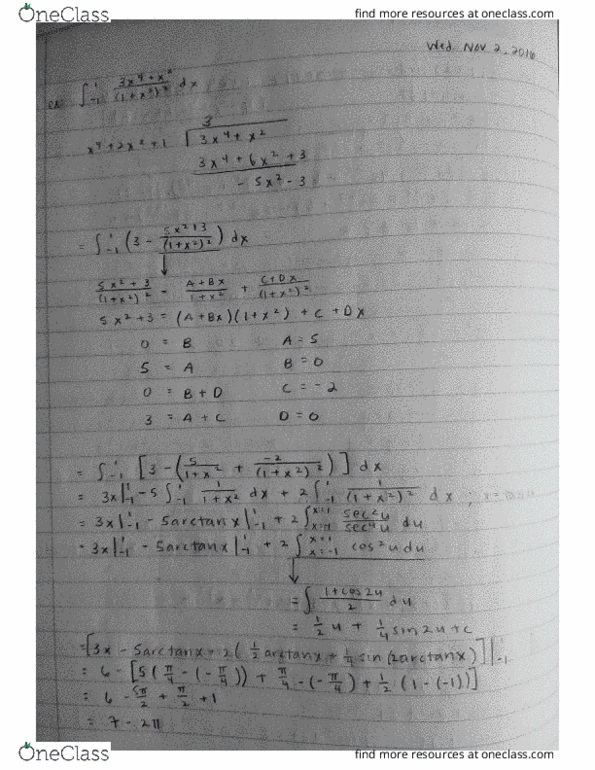 OneClass
find more resources at oneclass.com
Wed. Nov 2, 2016
ex. ∫₋₁¹ (3x⁴+x²)/(1+x²)² dx
3
x⁴+2x²+1 √ 3x⁴+x²
3x⁴+6x²+3
-5x²-3
= ∫₋₁¹ (3 - (5x²+3)/(1+x²)²) dx
↓
(5x²+3)/(1+x²)² = (A+Bx)/(1+x²) + (C+Dx)/(1+x²)²
5x²+3 = (A+Bx)(1+x²) + C+Dx
0 = B A=5
5 = A B=0
0 = B+D C=-2
3 = A+C D=0
= ∫₋₁¹ [3-(5/(1+x²) + -2/(1+x²)²)] dx
= 3x|₋₁¹ -5∫₋₁¹ 1/(1+x²) dx + 2∫₋₁¹ 1/(1+x²)² dx ;
= 3x|₋₁¹ - 5arctanx|₋₁¹ + 2∫ₓ₌₋₁ˣ⁼¹ sec²u/sec⁴u du
= 3x|₋₁¹ - 5arctanx|₋₁¹ + 2∫ₓ₌₋₁ˣ⁼¹ cos²u du
↓
= ∫ (1+cos2u)/2 du
= ½u + ¼sin2u+c
=[3x - 5arctanx + 2(½arctanx + ¼sin(2arctanx)]|₋₁¹
= 6 - [5(π/4 - (-π/4)) + π/4 - (-π/4) + ½(1-(-1))]
= 6 - 5π/2 + π/2 + 1
= 7 - 2π
OneClass
find more resources at oneclass.com